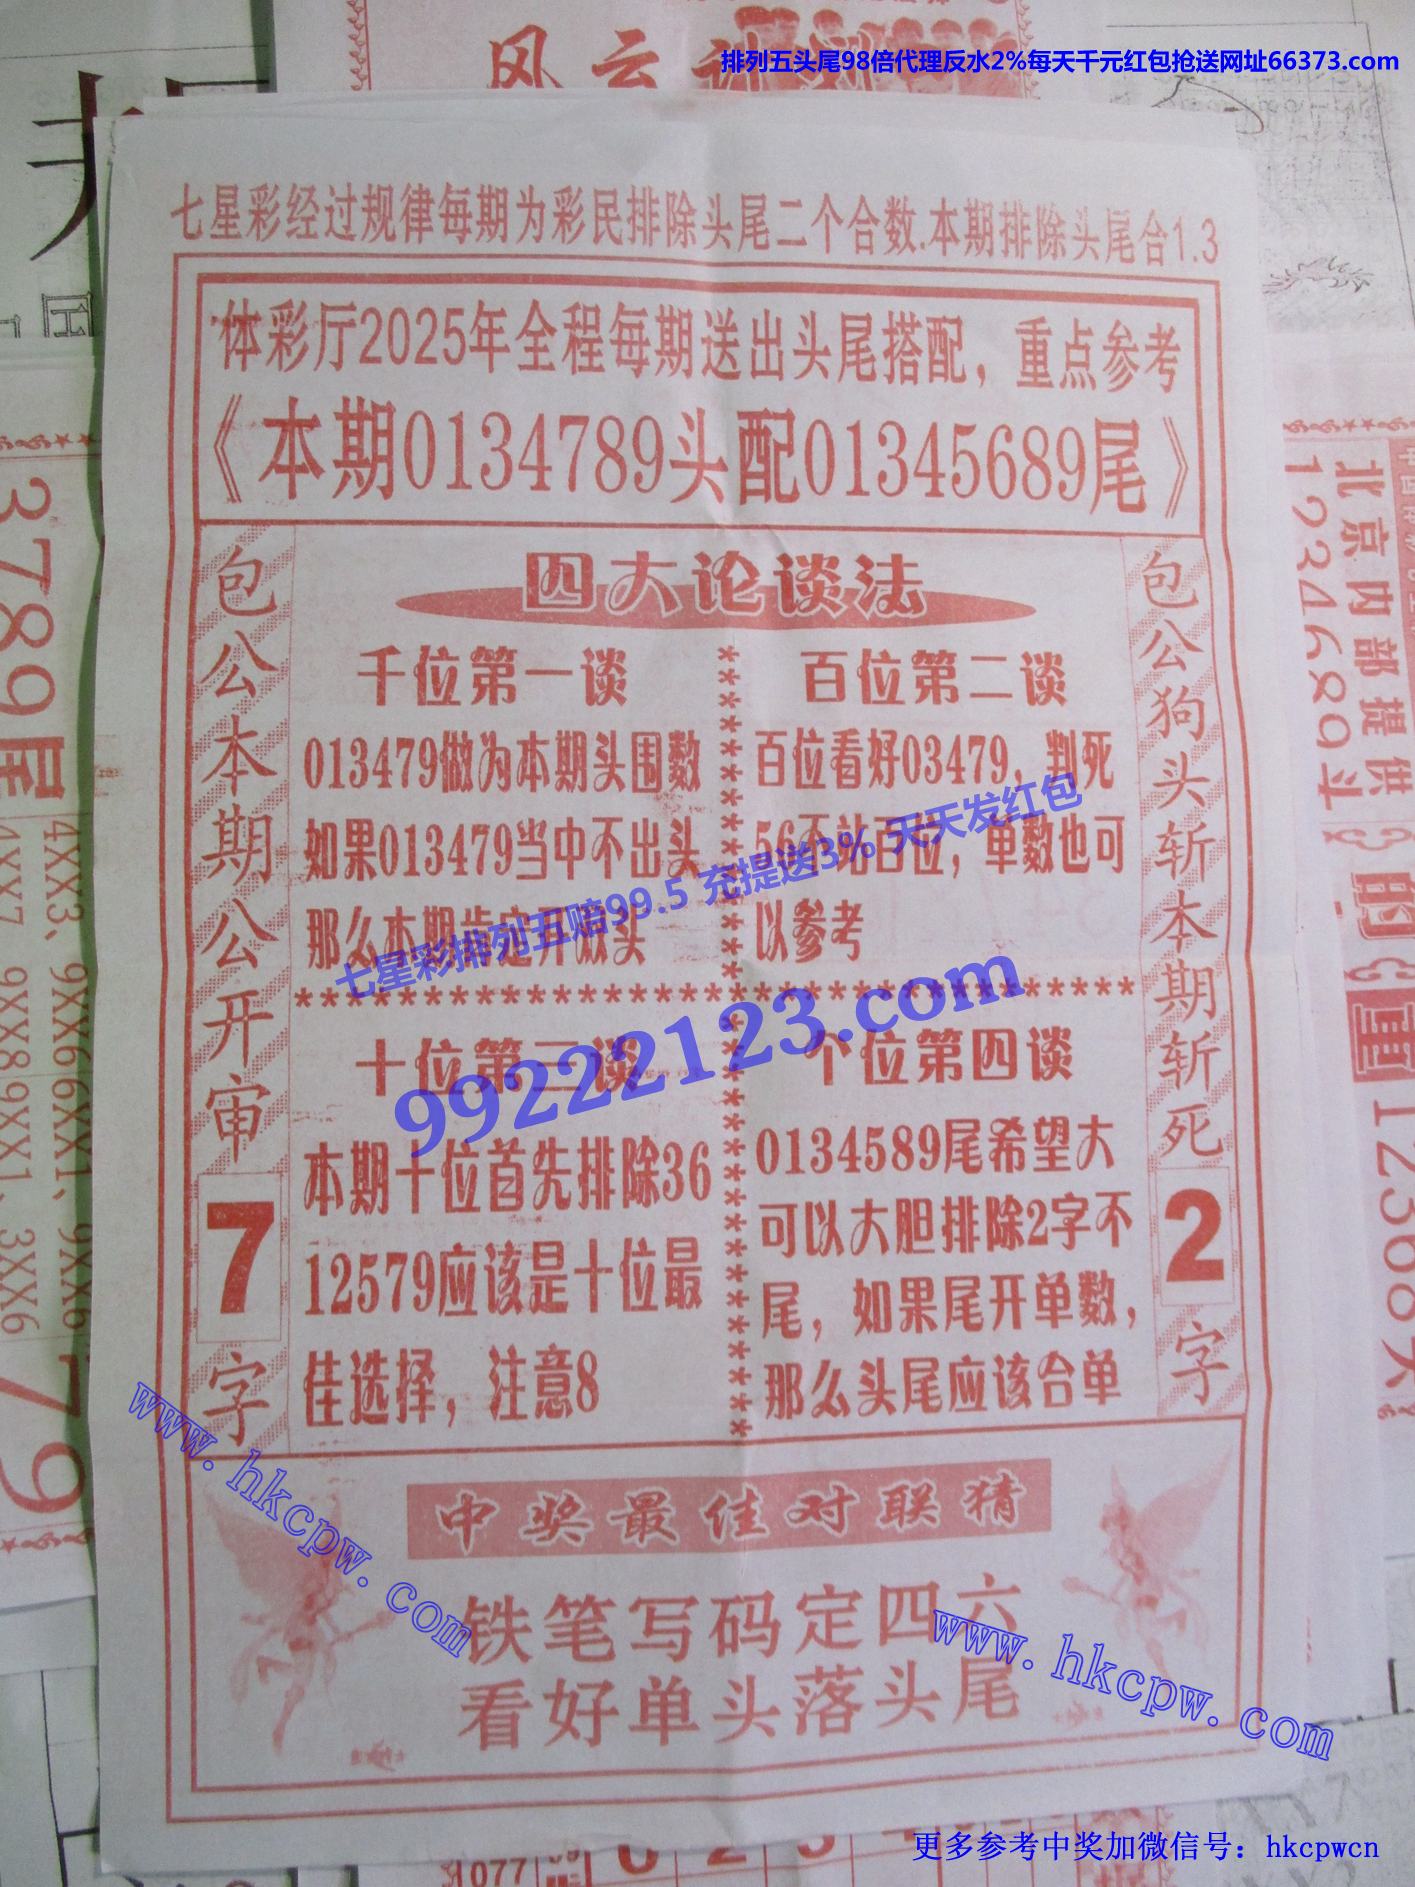 风云
排列五头尾98倍代理反水2%每天千元红包抢送网址66373.com
七星彩经过规律每期为彩民排除头尾二个合数.本期排除头尾合1.3
体彩厅2025年全程每期送出头尾搭配，重点参考
《本期0134789头配01345689尾》
包公本期公开审7字
四大论谈法
千位第一谈
013479做为本期头围数
如果013479当中不出头
那么本期肯定开双头
百位第二谈
百位看好03479，判死
56不站百位，单数也可
以参考
七星彩排列五赔99.5 充提送3% 天天发红包
99222123.com
十位第三谈
本期十位首先排除36
12579应该是十位最
佳选择，注意8
个位第四谈
0134589尾希望大
可以大胆排除2字不
尾，如果尾开单数，
那么头尾应该合单
包公狗头斩本期斩死2字
中奖最佳对联猜
铁笔写码定四六
看好单头落头尾
www.hkcpw.com
www.hkcpw.com
3789尾
4XX7 9XX89XX1、3XX6
4XX3、9XX66XX1、9XX6
79
北京内部提供
1234689头
的
重12368大
077
更多参考中奖加微信号：hkcpwcn